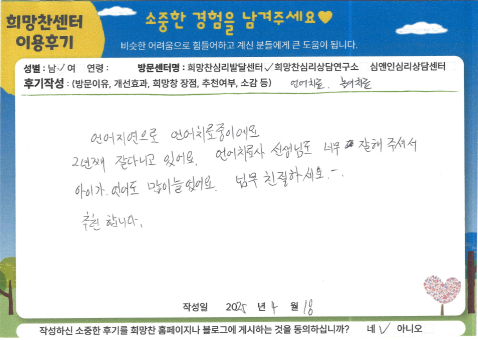 희망찬센터
이용후기
소중한 경험을 남겨주세요♥
비슷한 어려움으로 힘들어하고 계신 분들에게 큰 도움이 됩니다.
성별 : 남✓여 연령 : 방문센터명 : 희망찬심리발달센터✓희망찬심리상담연구소 심앤인심리상담센터
후기작성 : (방문이유, 개선효과, 희망찬 장점, 추천여부, 소감 등) 언어치료, 놀이치료
언어지연으로 언어치료중이에요
2년째 잘다니고 있어요. 언어치료사 선생님도 너무 잘해 주셔서
아이가 언어도 많이늘었어요. 넘무 친절하세요.
추천 합니다.
작성일 2025 년 4 월 18
작성하신 소중한 후기를 희망찬 홈페이지나 블로그에 게시하는 것을 동의하십니까? 네 ✓ 아니오